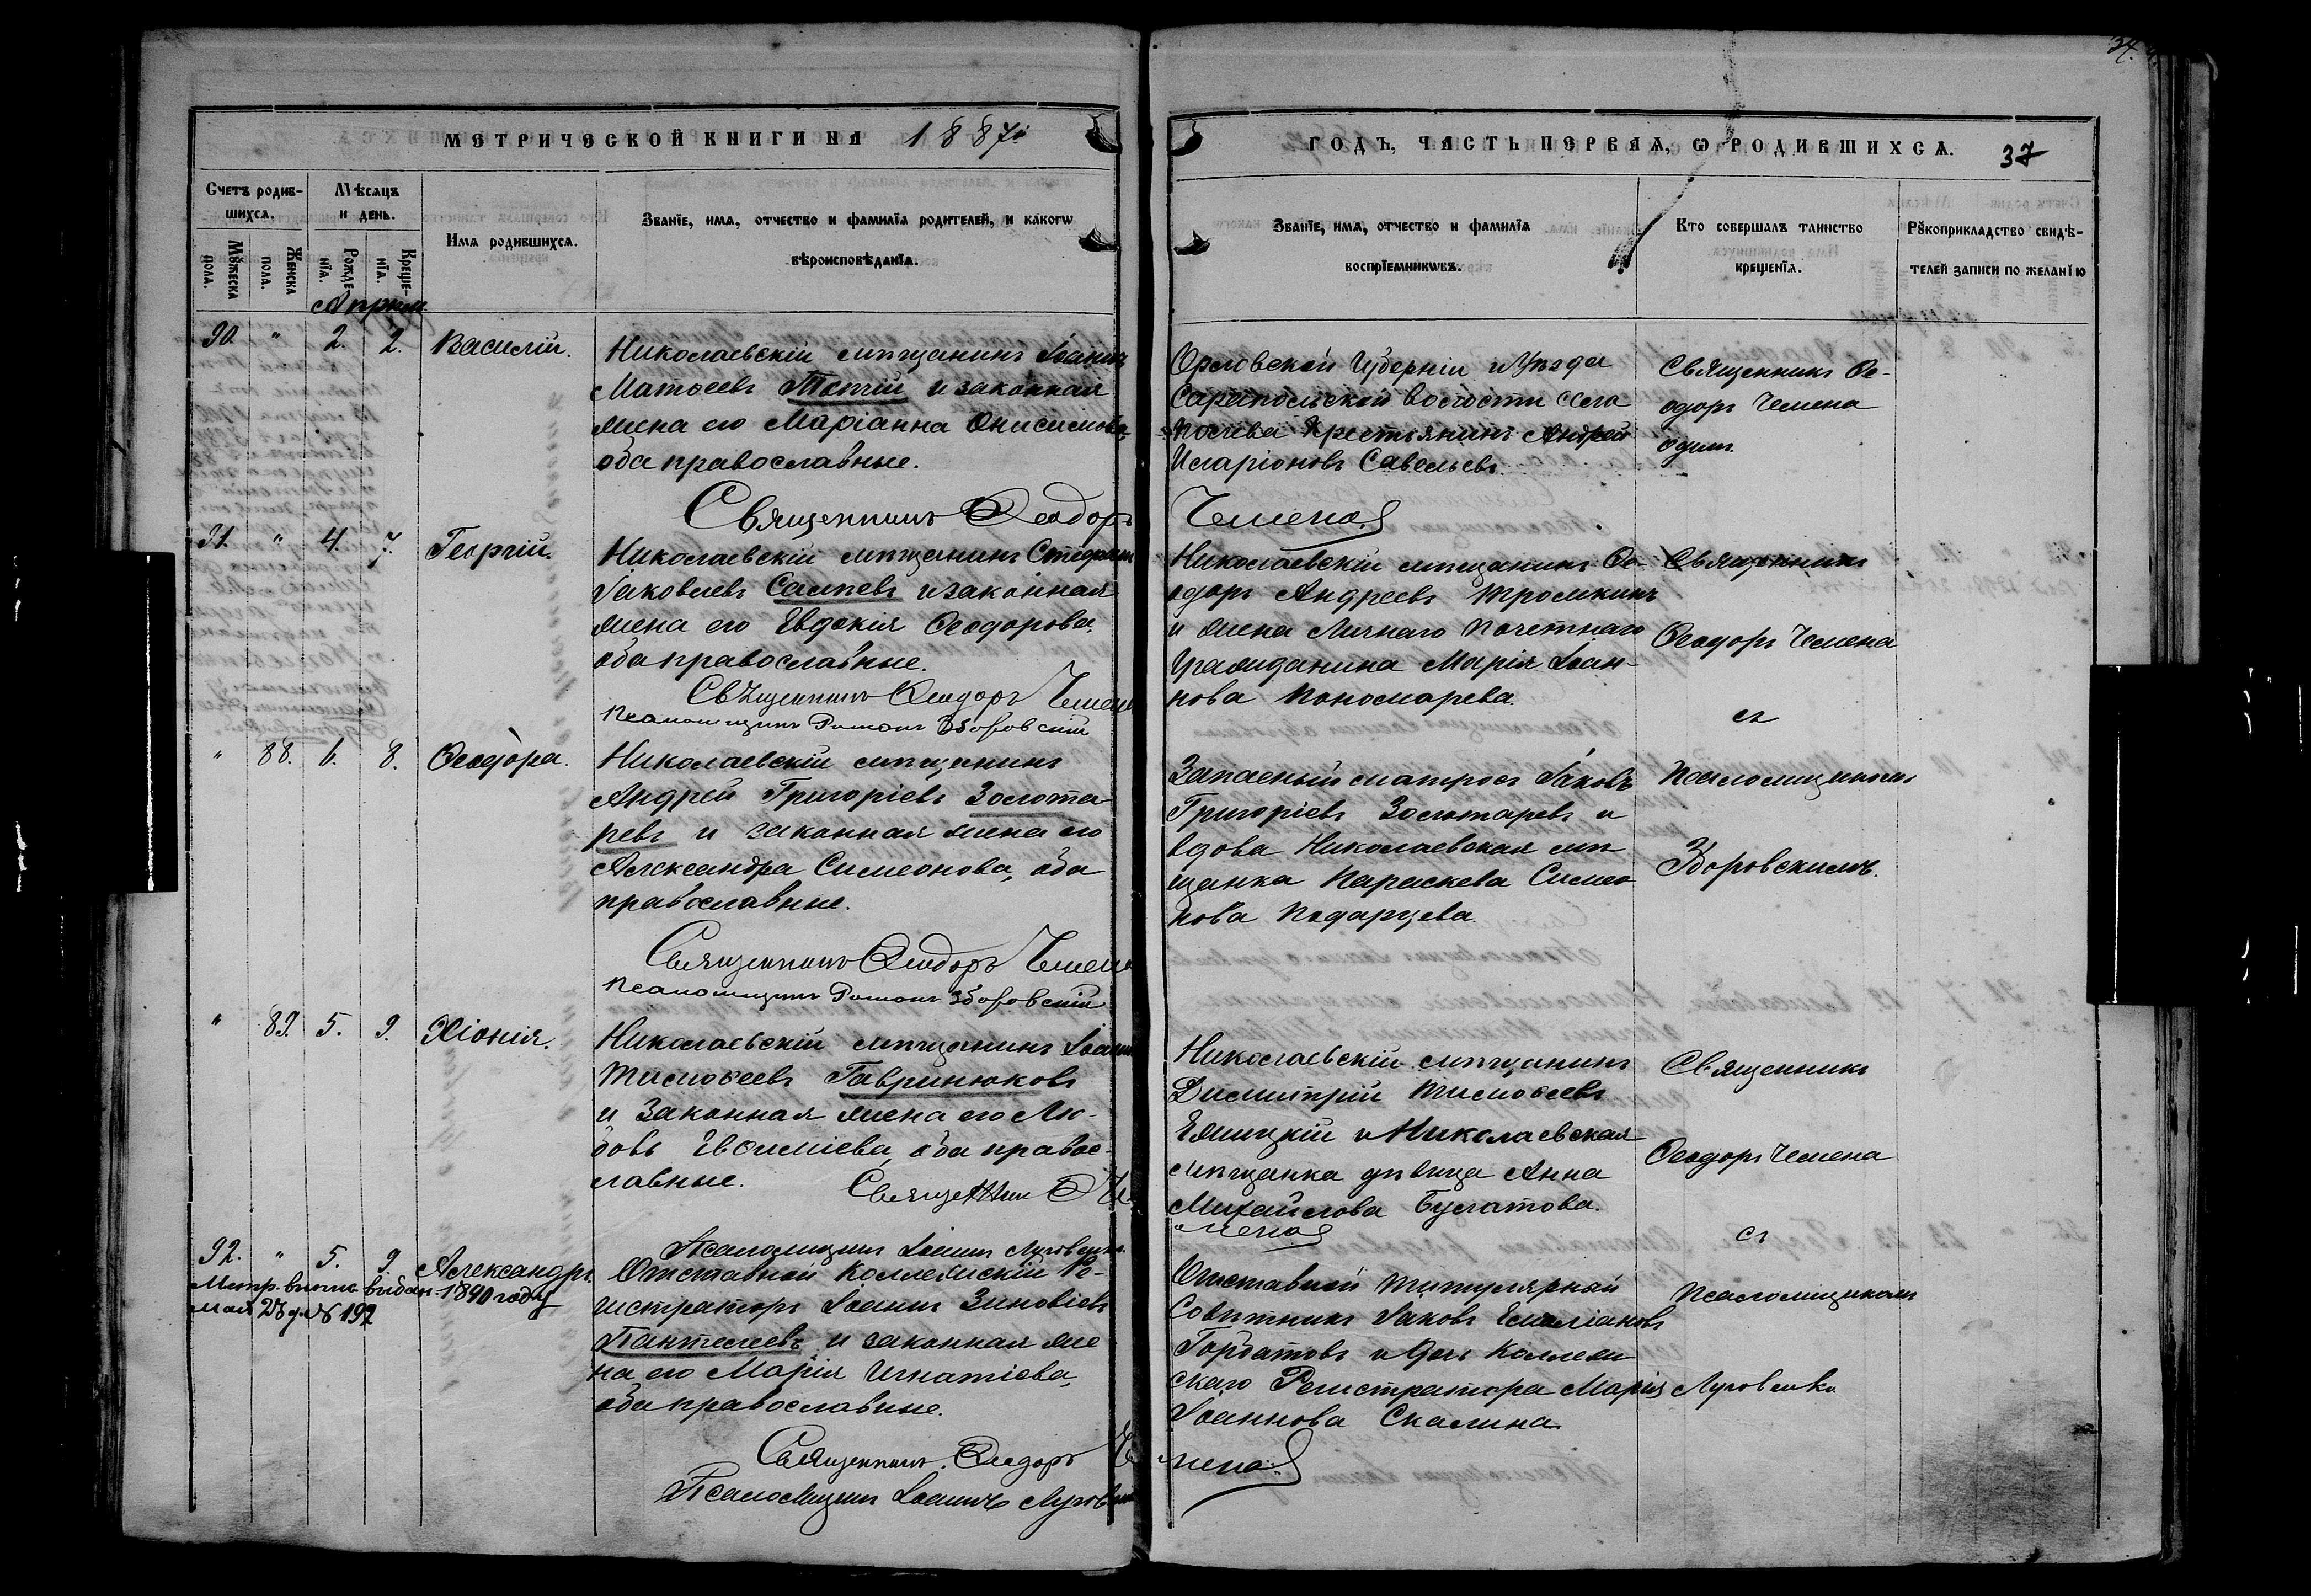 34.
МЕТРИЧЕСКОЙ КНИГИ НА 1887й
ГОДЪ, ЧАСТЬ ПЕРВАЯ, Ѡ РОДИВШИХСЯ. 37
Счетъ родив-
шихся.
Мѣсяцъ
и день.
Мꙋжеска
пола.
Женска
пола.
Рожде-
нїя.
Креще-
нїя.
Имя родившихся.
Званїе, имя, отчество и фамилїя родителей, и какогѡ
вѣроисповѣданїя.
Званїе, имя, отчество и фамилїя
воспрїемникѡвъ.
Кто совершалъ таинство
крещенїя.
Рꙋкоприкладство свидѣ-
телей записи по желанїю
Апрѣль.
90. " 2. 2. Василій.
Николаевскій мѣщанинъ Іоаннъ
Матѳеевъ Топчій и законная
жена его Маріанна Онисимова,
оба православные.
Священникъ Ѳеодоръ
Чемена
Орловской Губерніи и Уѣзда
волости села
Крестьянинъ Андрей
Иларіоновъ Савельевъ.
Священникъ Ѳе-
одоръ Чемена
одинъ.
91. " 4. 7. Георгій.
Николаевскій мѣщанинъ Стефанъ
Іаковлевъ и законная
жена его Евдокія Ѳеодорова,
оба православные.
Священникъ Ѳеодоръ Чемена
Псаломщикъ Романъ Зборовскій
Николаевскій мѣщанинъ Ѳе-
одоръ Андреевъ Тромкинъ
и жена Личнаго Почетнаго
Гражданина Марія Іоан-
нова Пономарева.
Священникъ
Ѳеодоръ Чемена
съ
" 88. 6. 8. Ѳеодора.
Николаевскій мѣщанинъ
Андрей Григоріевъ Золота-
ревъ и законная жена его
Александра Симеонова, оба
православные.
Священникъ Ѳеодоръ Чемена
Псаломщикъ Романъ Зборовскій
Запасный матросъ Іаковъ
Григоріевъ Золотаревъ и
вдова Николаевская мѣ-
щанка Параскева Симео-
нова Подарцева.
Псаломщикомъ
Зборовскимъ.
" 89. 5. 9. Хіонія.
Николаевскій мѣщанинъ Іоаннъ
Тимоѳеевъ Гавринюковъ
и законная жена его Лю-
бовь Евѳиміева, оба правос-
лавные.
Священник Ѳ Че
мена
Псаломщикъ Іоаннъ Луговенко
Николаевскій мѣщанинъ
Димитрій Тимоѳеевъ
и Николаевская
мѣщанка дѣвица Анна
Михайлова Булатова.
Священникъ
Ѳеодоръ Чемена
съ
92. " 5. 9. Александръ.
Метр. выпись выдан. 1890 году
мая 28 д. № 192
Отставной Коллежскій Ре-
гистраторъ Іоаннъ Зиновіевъ
Пантелеевъ и законная же-
на его Марія Игнатіева,
оба православные.
Священникъ Ѳеодоръ Че
мена
Псаломщикъ Іоаннъ Луговенко
Отставной Титулярный
Совѣтникъ Іаковъ Емиліановъ
Горбатовъ и дочь Коллеж-
скаго Регистратора Марія
Іоаннова Скалина
Псаломщикомъ
Луговенко